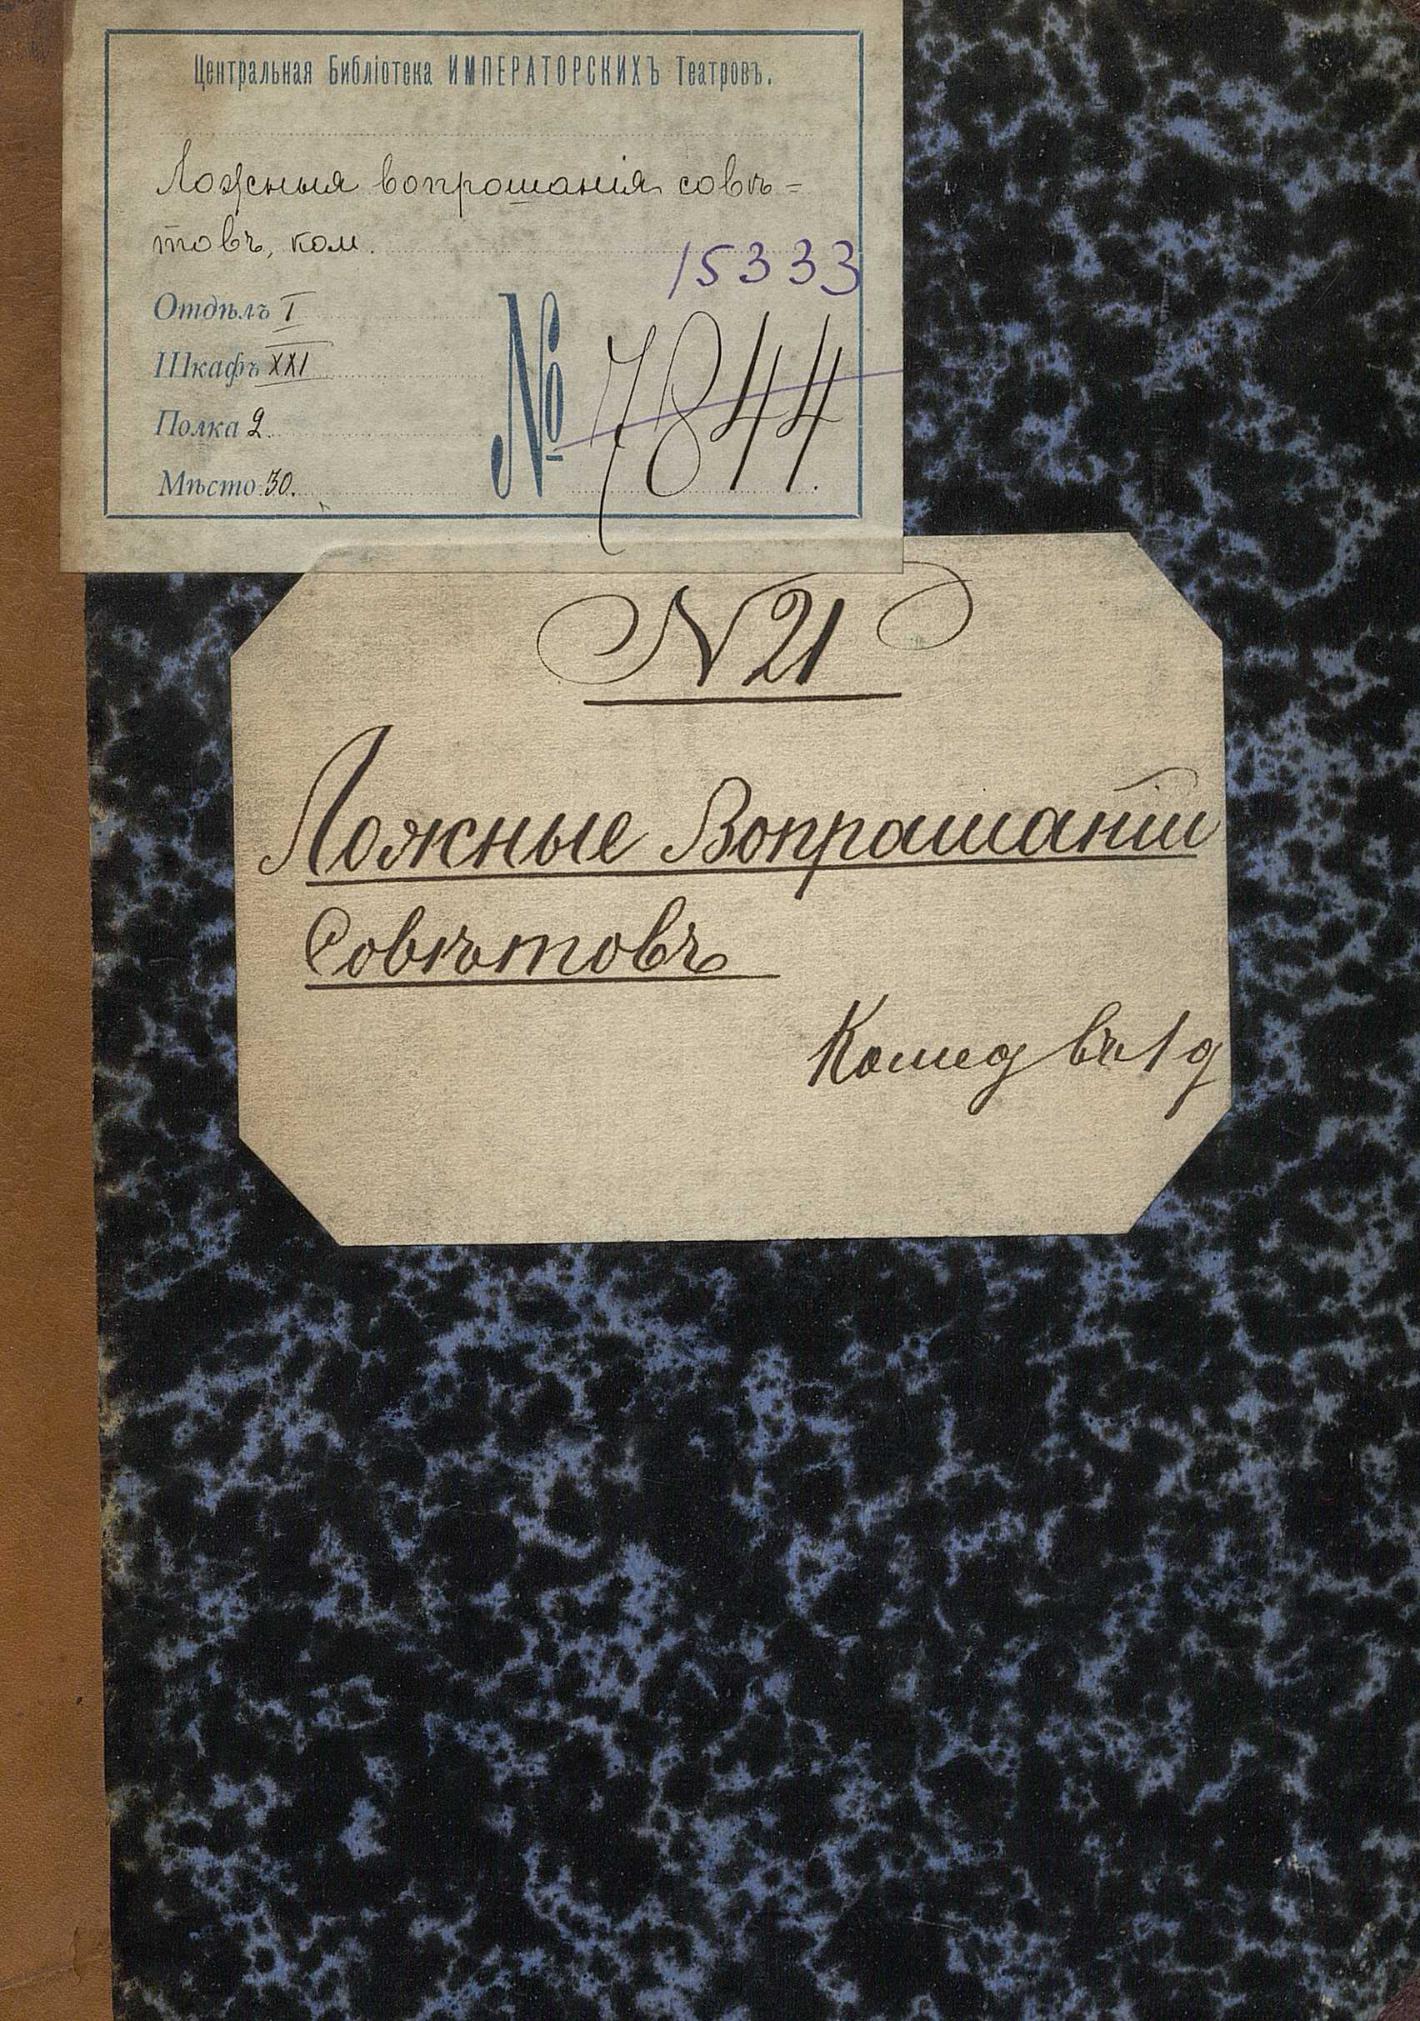 Центральная Библіотека ИМПЕРАТОРСКИХЪ Театровъ.
Ложныя вопрошанія совѣ-
товъ, ком.
15333
Отдѣлъ I
Шкафъ XXI
Полка 2
Мѣсто 30.
№ 7844.
N 21
Ложные Вопрашаніи
Совѣтовъ
Комед въ 1 д